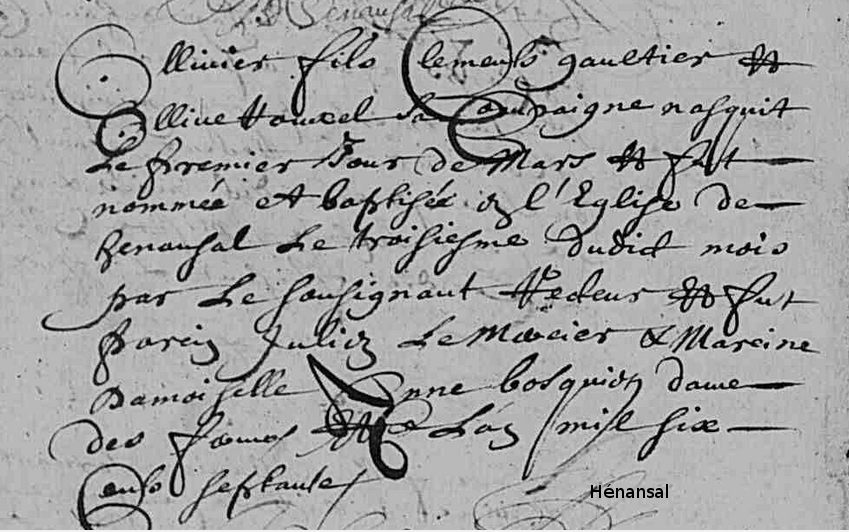 Ollivier fils Clemens gaultier et
Ollive Houxel sa Compaigne nasquit
Le premier Jour de Mars et fut
nommée et baptisée en l'Eglise de
henansal Le troisiesme dudict mois
par Le sousignant Recteur et fut
parein Julien Le Mercier & Mareine
Damoiselle Anne bosquien dame
des L'an mil six
cens septante
Hénansal